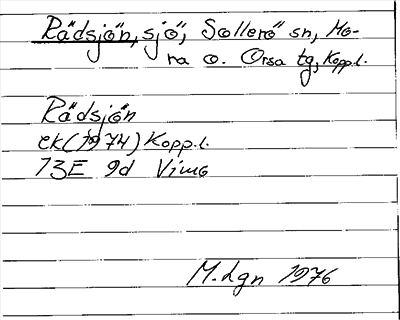 Rädsjön, sjö, Sollerö sn, Mo-
ra o. Orsa tg, Kopp.l.
Rädsjön
ek (1974) Kopp.l.
13E 9d Vimo
M. Lgn 1976